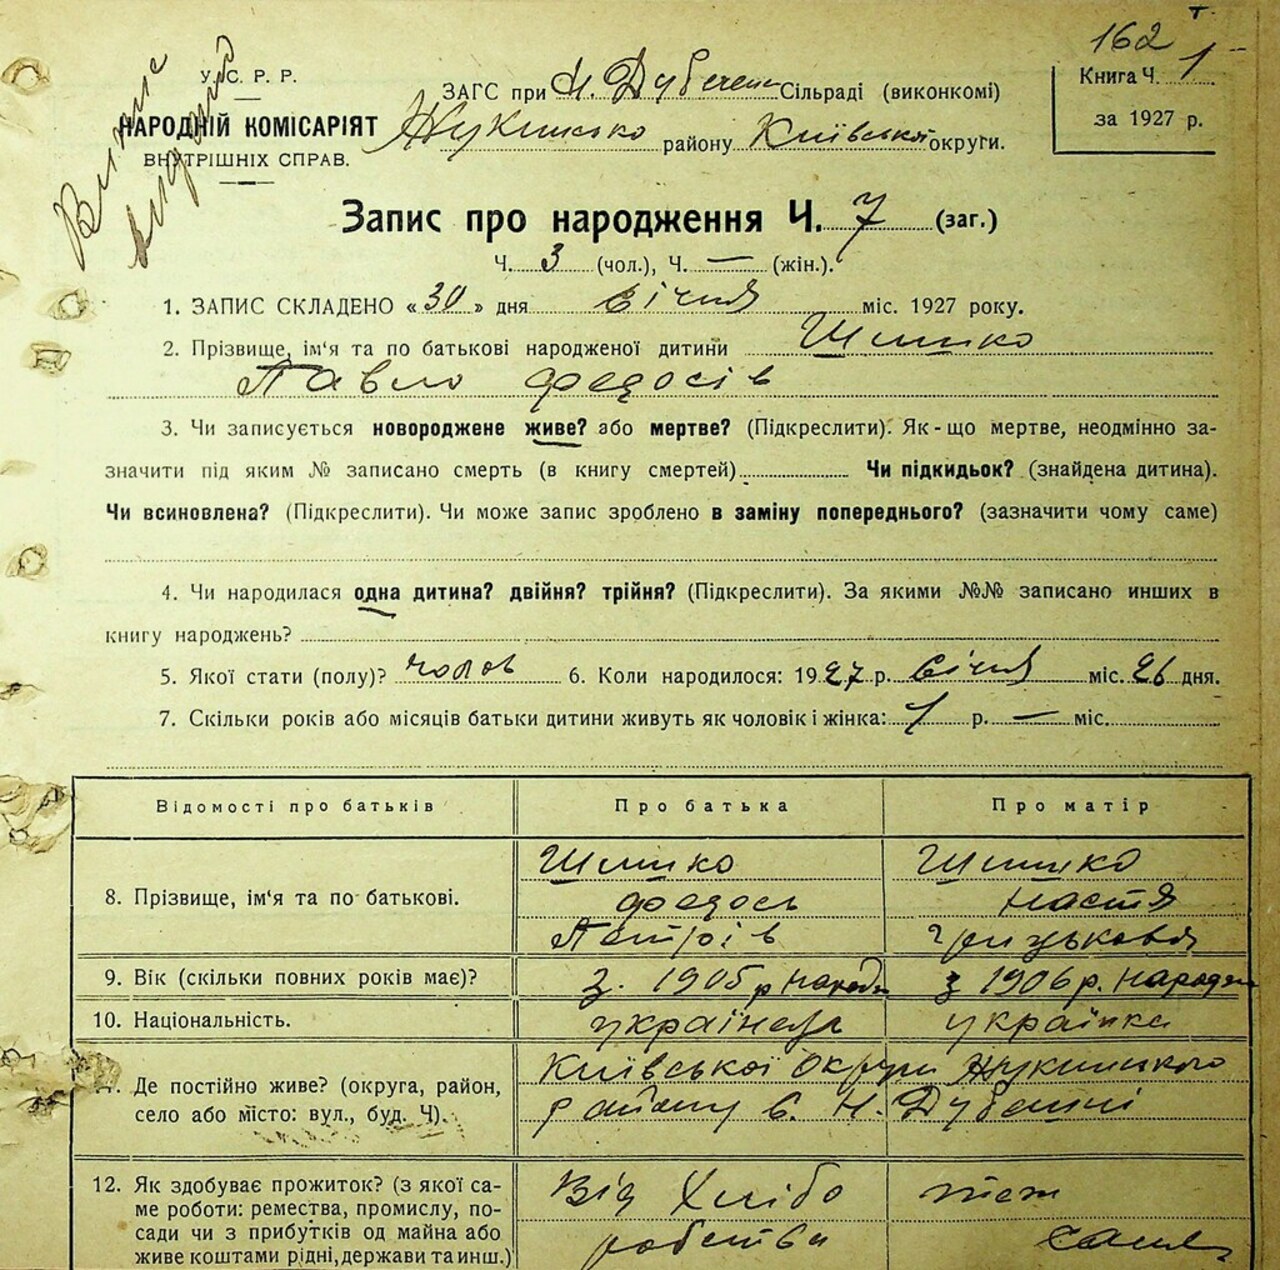 162
Витяг
видано
У. С. Р. Р.
НАРОДНІЙ КОМІСАРІЯТ
ВНУТРІШНІХ СПРАВ.
ЗАГС при Н. Дубечен Сільраді (виконкомі)
Жукинсько району Київської округи.
Книга Ч. 1
за 1927 р.
Запис про народження Ч. 7 (заг.)
Ч. 3 (чол.), Ч. — (жін.).
1. ЗАПИС СКЛАДЕНО «30» дня січня міс. 1927 року.
2. Прізвище, ім'я та по батькові народженої дитини Шишко
Павло Федосів
3. Чи записується новороджене живе? або мертве? (Підкреслити). Як-що мертве, неодмінно за-
значити під яким № записано смерть (в книгу смертей) Чи підкидьок? (знайдена дитина).
Чи всиновлена? (Підкреслити). Чи може запис зроблено в заміну попереднього? (зазначити чому саме)
4. Чи народилася одна дитина? двійня? трійня? (Підкреслити). За якими №№ записано инших в
книгу народжень?
5. Якої стати (полу)? чолов 6. Коли народилося: 1927 р. січня міс. 26 дня.
7. Скільки років або місяців батьки дитини живуть як чоловік і жінка: 1 р. — міс.
Відомості про батьків Про батька Про матір
8. Прізвище, ім'я та по батькові.
Шишко Шишко
Федось Настя
Петрів Грицькова
9. Вік (скільки повних років має)? з. 1905 р народж з 1906 р. народжен
10. Національність. українець українка
11. Де постійно живе? (округа, район,
село або місто: вул., буд. Ч).
Київської округи Жукинського
району с. Н. Дубечні
12. Як здобуває прожиток? (з якої са-
ме роботи: ремества, промислу, по-
сади чи з прибутків од майна або
живе коштами рідні, держави та инш.)
Від Хлібо теж
робства саме